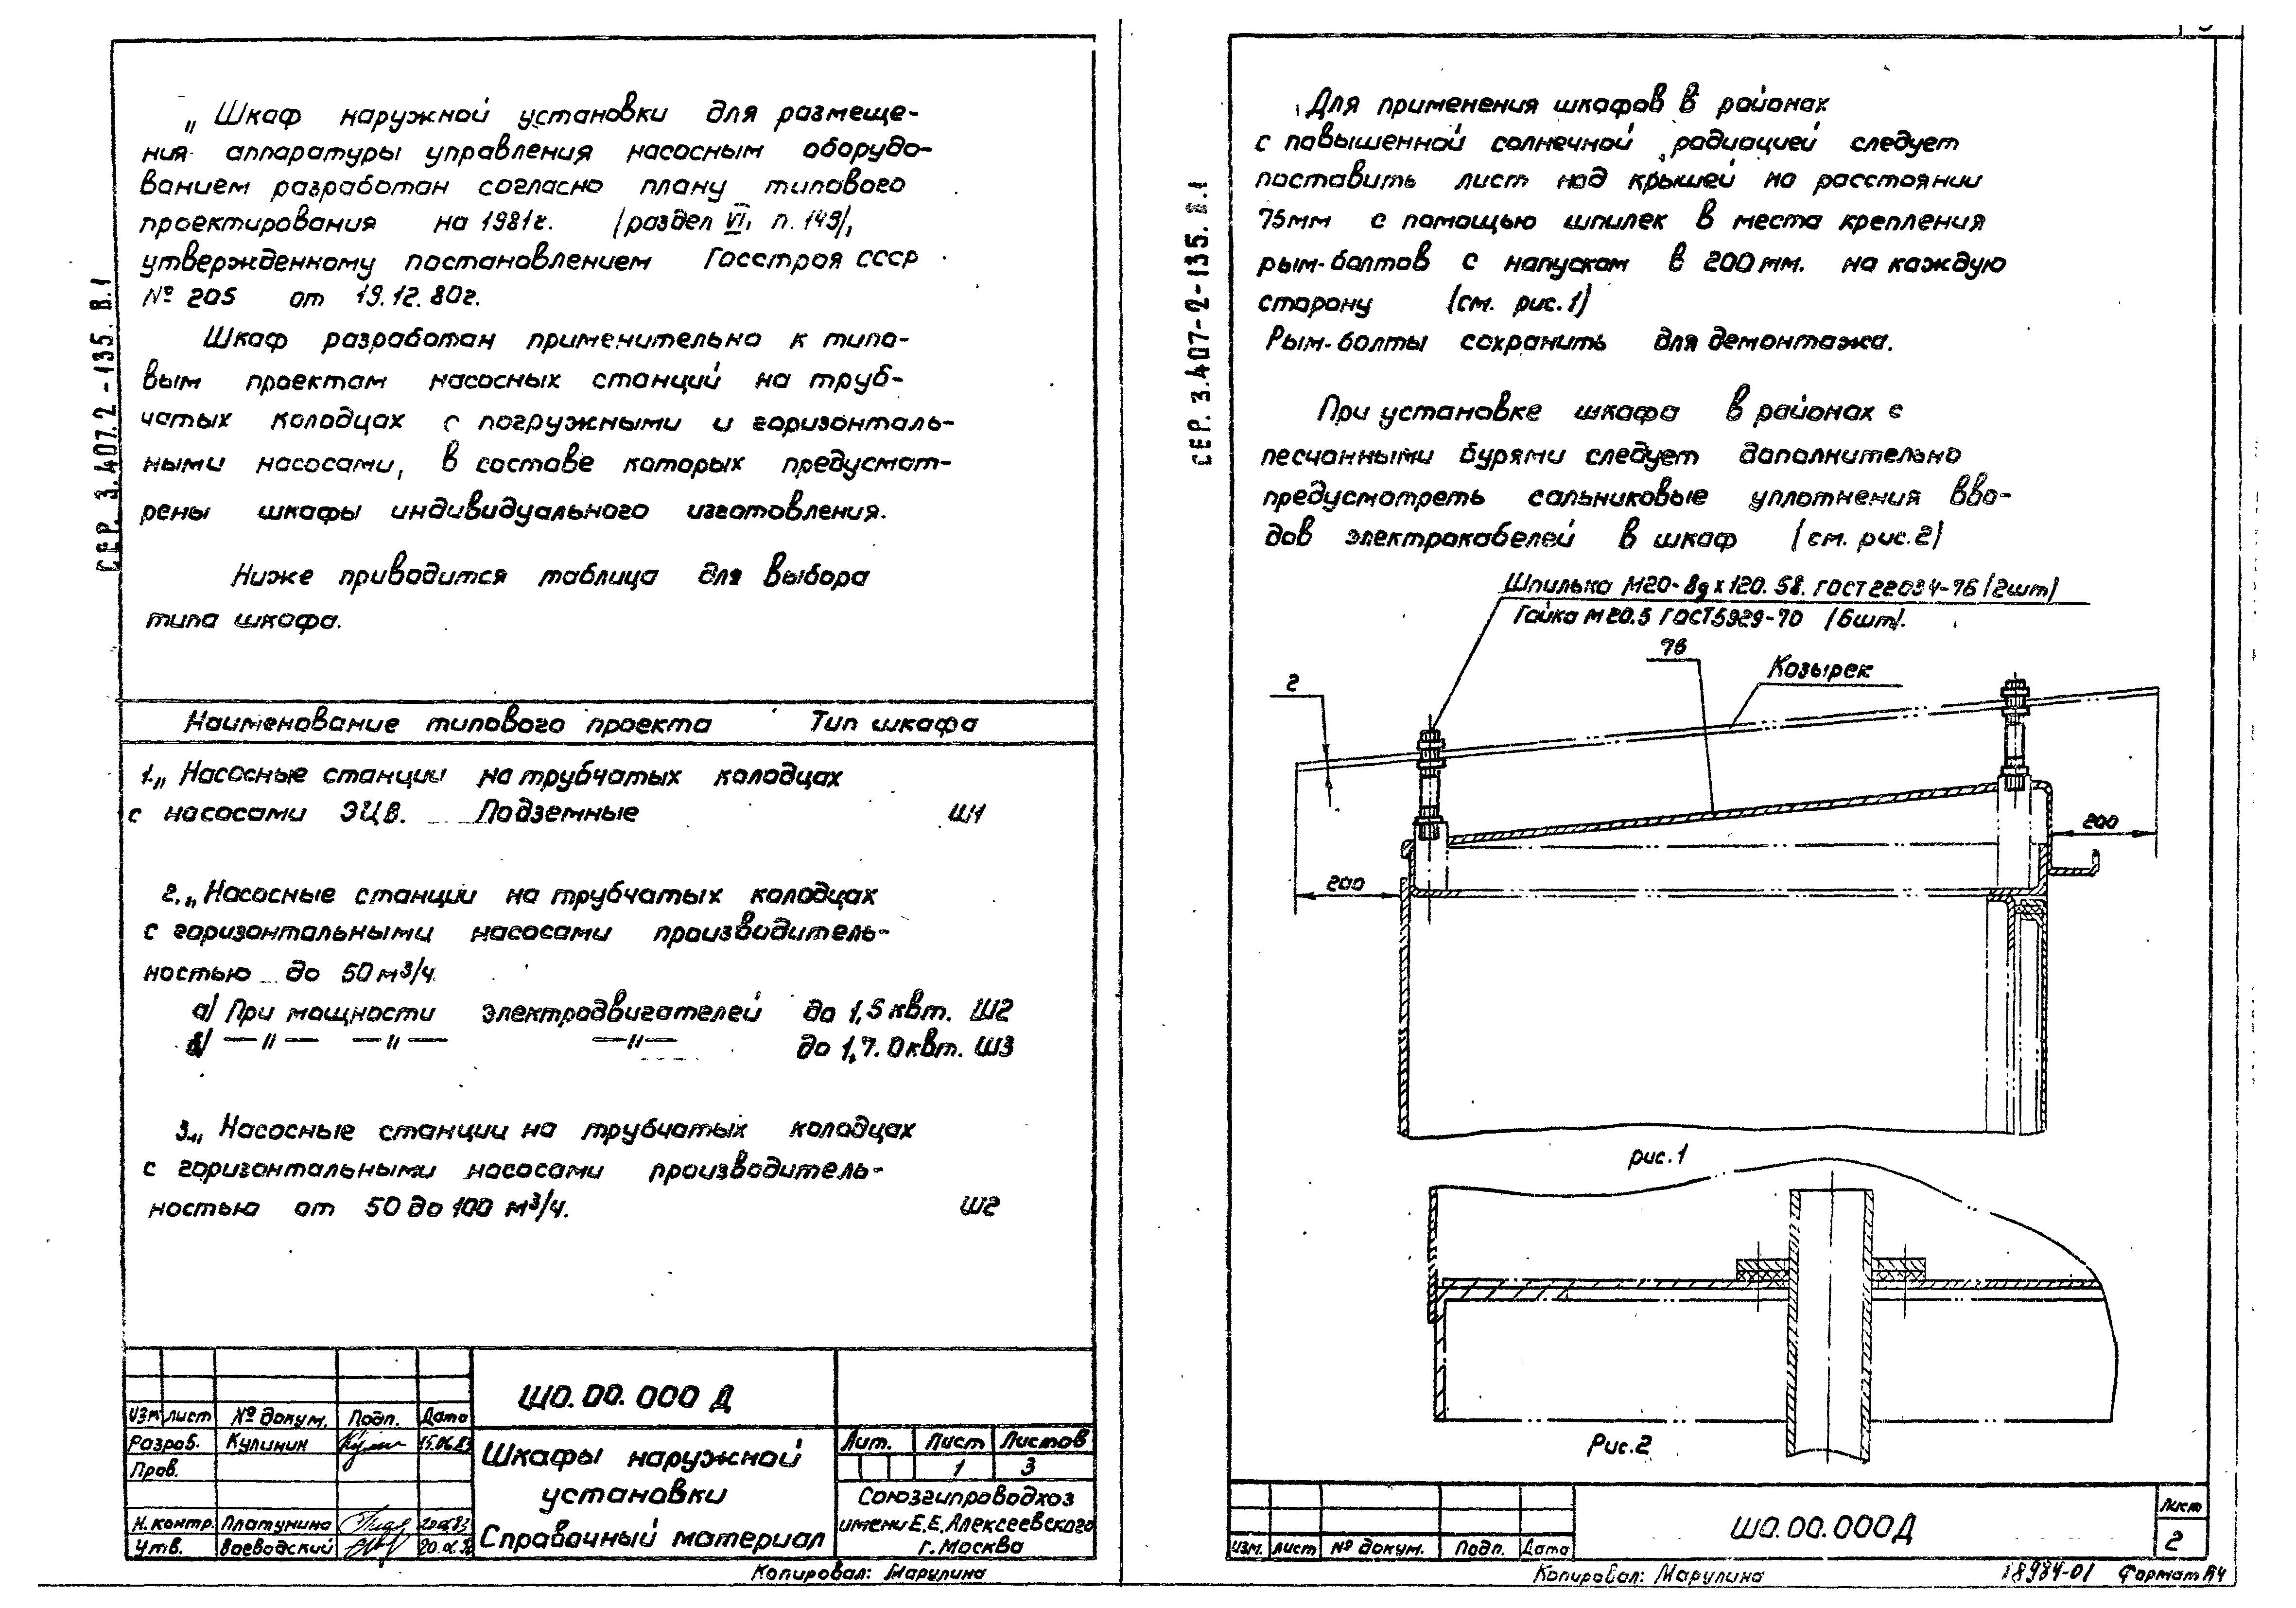 СЕР. 3.407.2-135. В.1
„ Шкаф наружной установки для размеще-
ния аппаратуры управления насосным оборудо-
ванием разработан согласно плану типового
проектирования на 1981г. /раздел VI, п. 149/,
утвержденному постановлением Госстроя СССР
№ 205 от 19.12.80г.
Шкаф разработан применительно к типо-
вым проектам насосных станций на труб-
чатых колодцах с погружными и горизонталь-
ными насосами, в составе которых предусмот-
рены шкафы индивидуального изготовления.
Ниже приводится таблица для выбора
типа шкафа.
Наименование типового проекта Тип шкафа
1.„ Насосные станции на трубчатых колодцах
с насосами ЭЦВ. Подземные Ш1
2.„ Насосные станции на трубчатых колодцах
с горизонтальными насосами производитель-
ностью до 50 м³/ч.
а/ При мощности электродвигателей до 1,5 квт. Ш2
б/ —„— —„— —„— до 1,7.0 квт. Ш3
3.„ Насосные станции на трубчатых колодцах
с горизонтальными насосами производитель-
ностью от 50 до 100 м³/ч. Ш2
Ш0.00.000 Д
Изм лист № докум. Подп. Дата
Разраб. Кулинин 15.06.83
Пров.
Н. контр. Платунина
Утв. Воеводский
Шкафы наружной
установки
Справочный материал
Лит. Лист Листов
1 3
Союзгипроводхоз
имени Е.Е.Алексеевского
г. Москва
Копировал: Марулина
СЕР. 3.407-2-135. В.1
Для применения шкафов в районах
с повышенной солнечной радиацией следует
поставить лист над крышей на расстоянии
75мм с помощью шпилек в места крепления
рым-болтов с напуском в 200 мм. на каждую
сторону (см. рис.1)
Рым-болты сохранить для демонтажа.
При установке шкафа в районах с
песчанными бурями следует дополнительно
предусмотреть сальниковые уплотнения вво-
дов электрокабелей в шкаф (см. рис.2)
Шпилька М20-8gх120.58. ГОСТ 22034-76 /2шт/
Гайка М20.5 ГОСТ 5929-70 /6шт/.
76
Козырек
2
200
200
рис.1
Рис.2
Ш0.00.000Д
Лист
2
Изм. лист № докум. Подп. Дата
Копировал: Марулина
18984-01 Формат А4